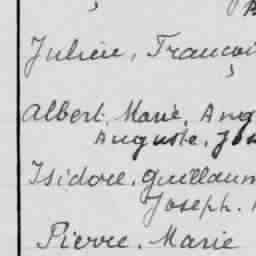 Julien, Françoi
Albert, Marie, Ang
Auguste, Jos
Isidore, Guillaum
Joseph,
Pierre, Marie